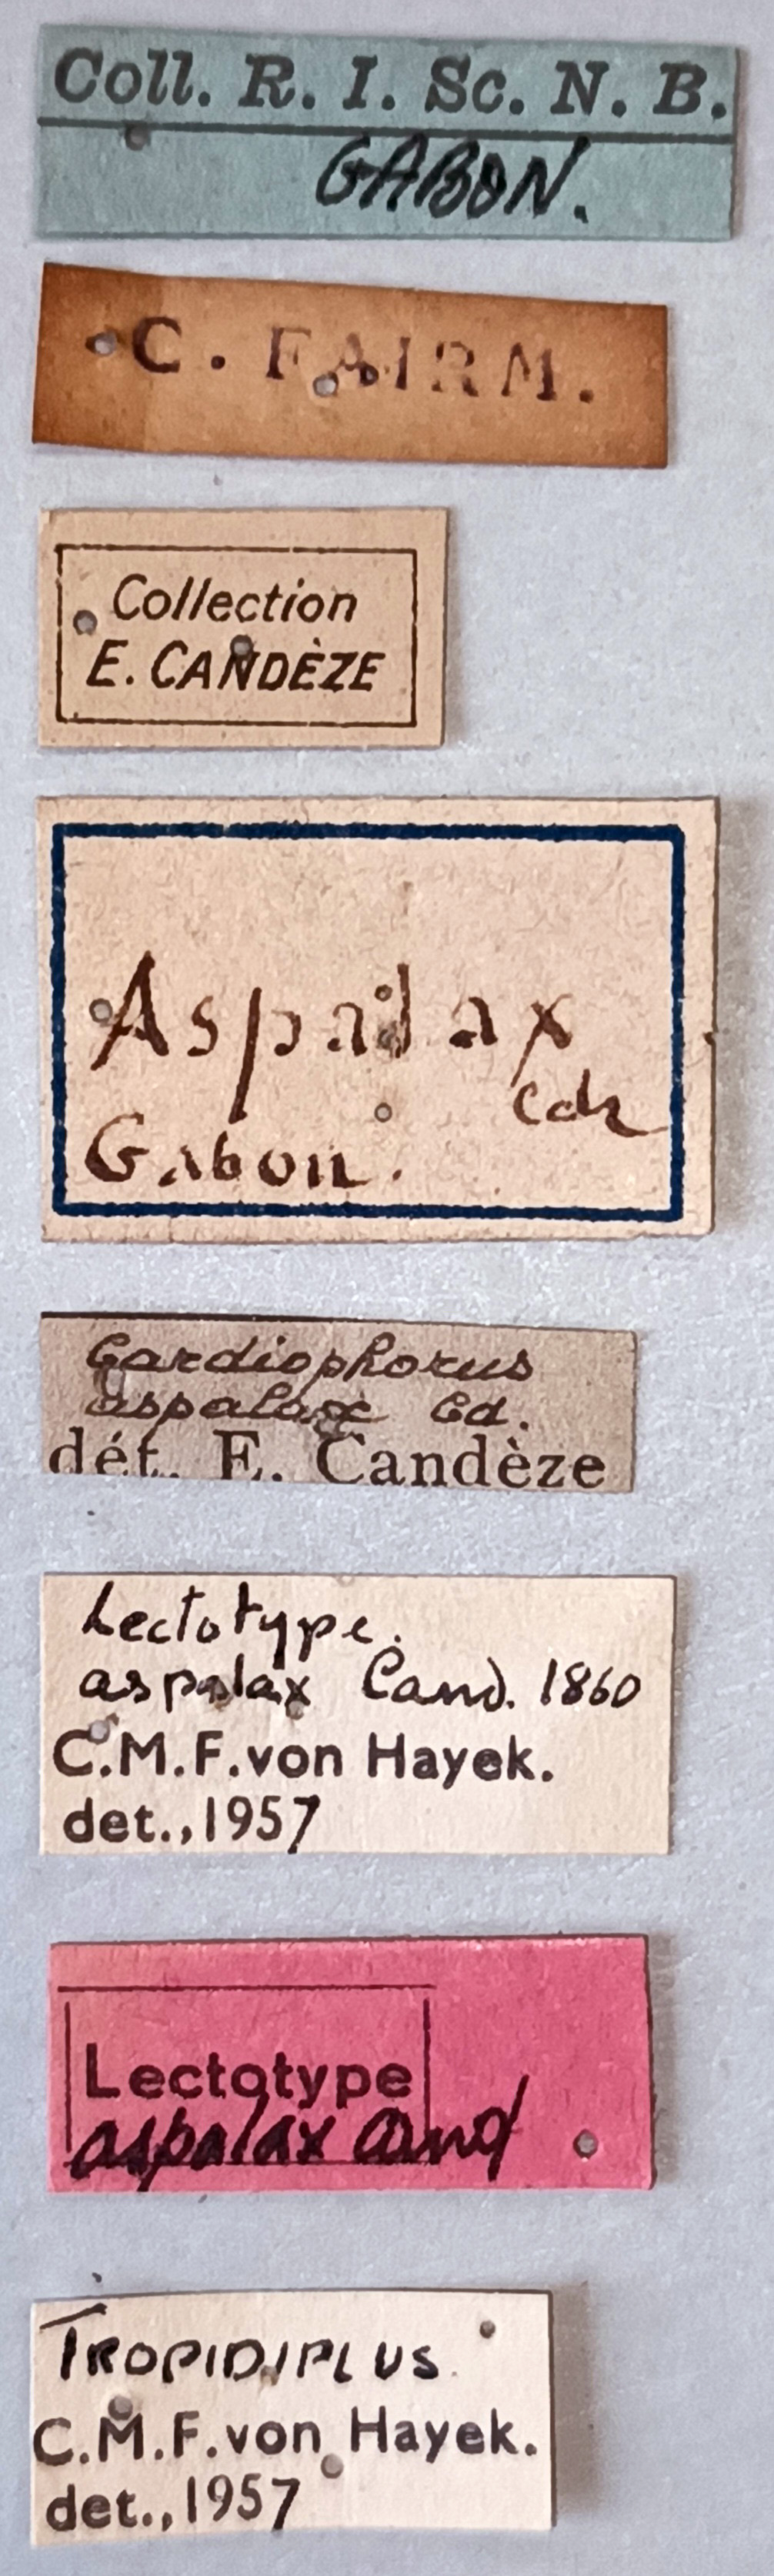 Coll. R. I. Sc. N. B.
GABON.
C. FAIRM.
Collection
E. CANDÈZE
Aspalax
Cdz
Gabon.
Cardiophorus
aspalax Cd.
dét. E. Candèze
Lectotype.
aspalax Cand. 1860
C.M.F.von Hayek.
det.,1957
Lectotype
aspalax Cand
TROPIDIPLUS
C.M.F.von Hayek.
det.,1957